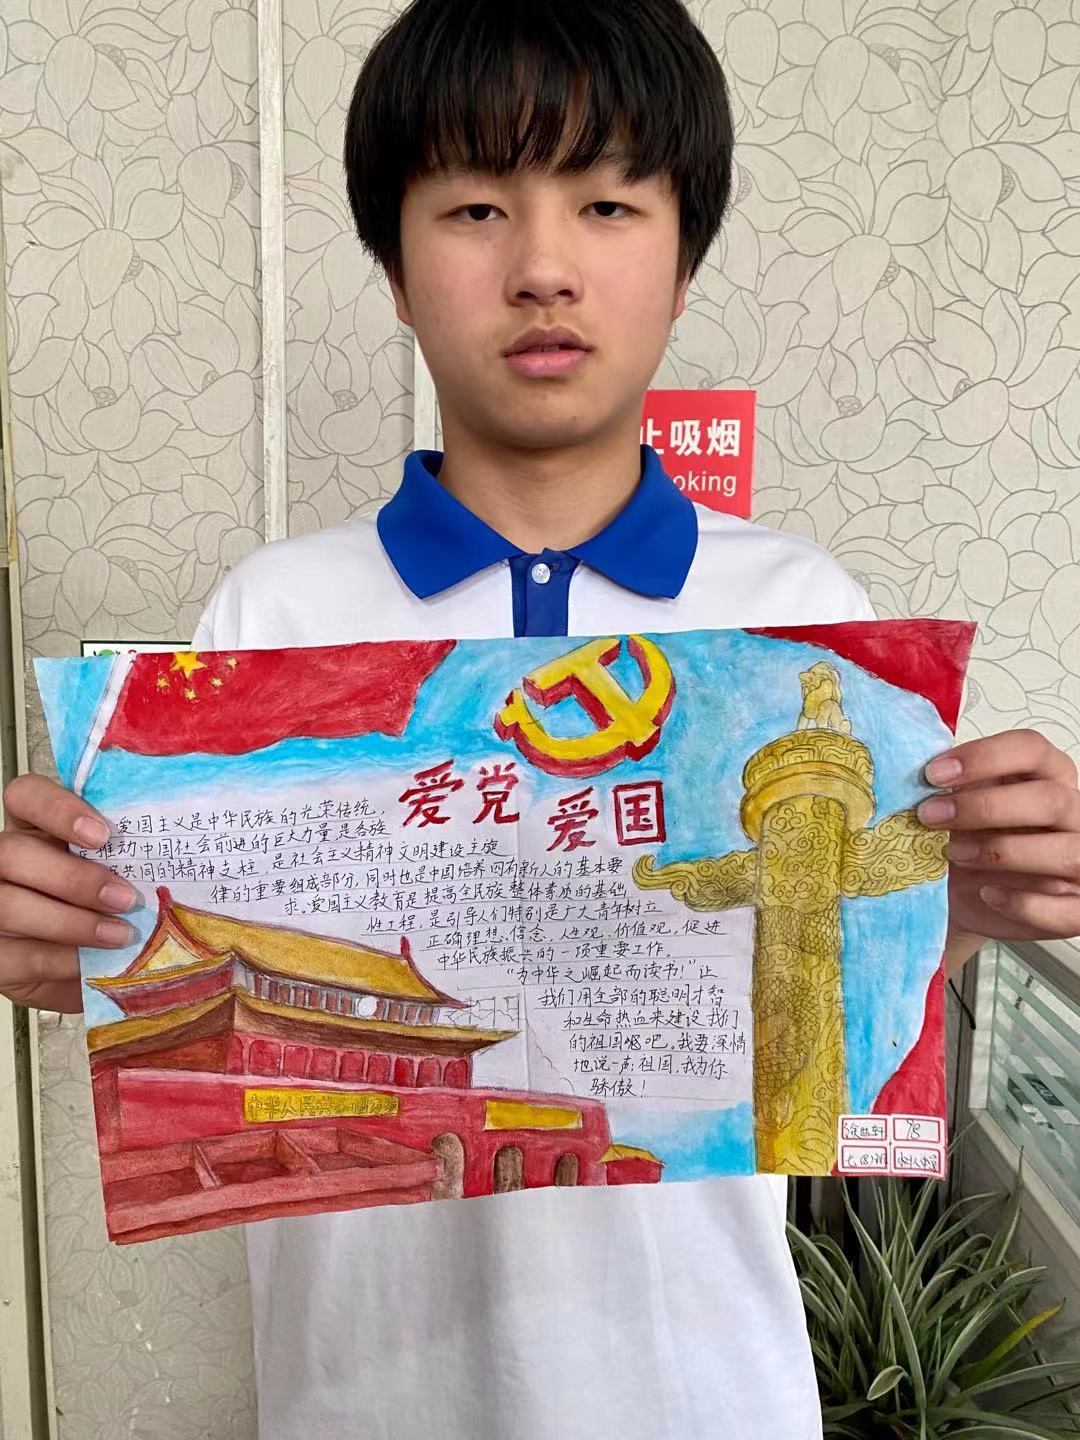 止吸烟
oking
爱党
爱国
爱国主义是中华民族的光荣传统，
是推动中国社会前进的巨大力量是各族
共同的精神支柱，是社会主义精神文明建设主旋
律的重要组成部分，同时也是中国培养四有新人的基本要
求。爱国主义教育是提高全民族整体素质的基础
性工程，是引导人们特别是广大青年树立
正确理想、信念、人生观、价值观，促进
中华民族振兴的一项重要工作。
“为中华之崛起而读书！”让
我们用全部的聪明才智
和生命热血来建设我们
的祖国吧，我要深情
地说一声：祖国，我为你
骄傲！
中华人民共和国万
男
七(8)班
树人中学